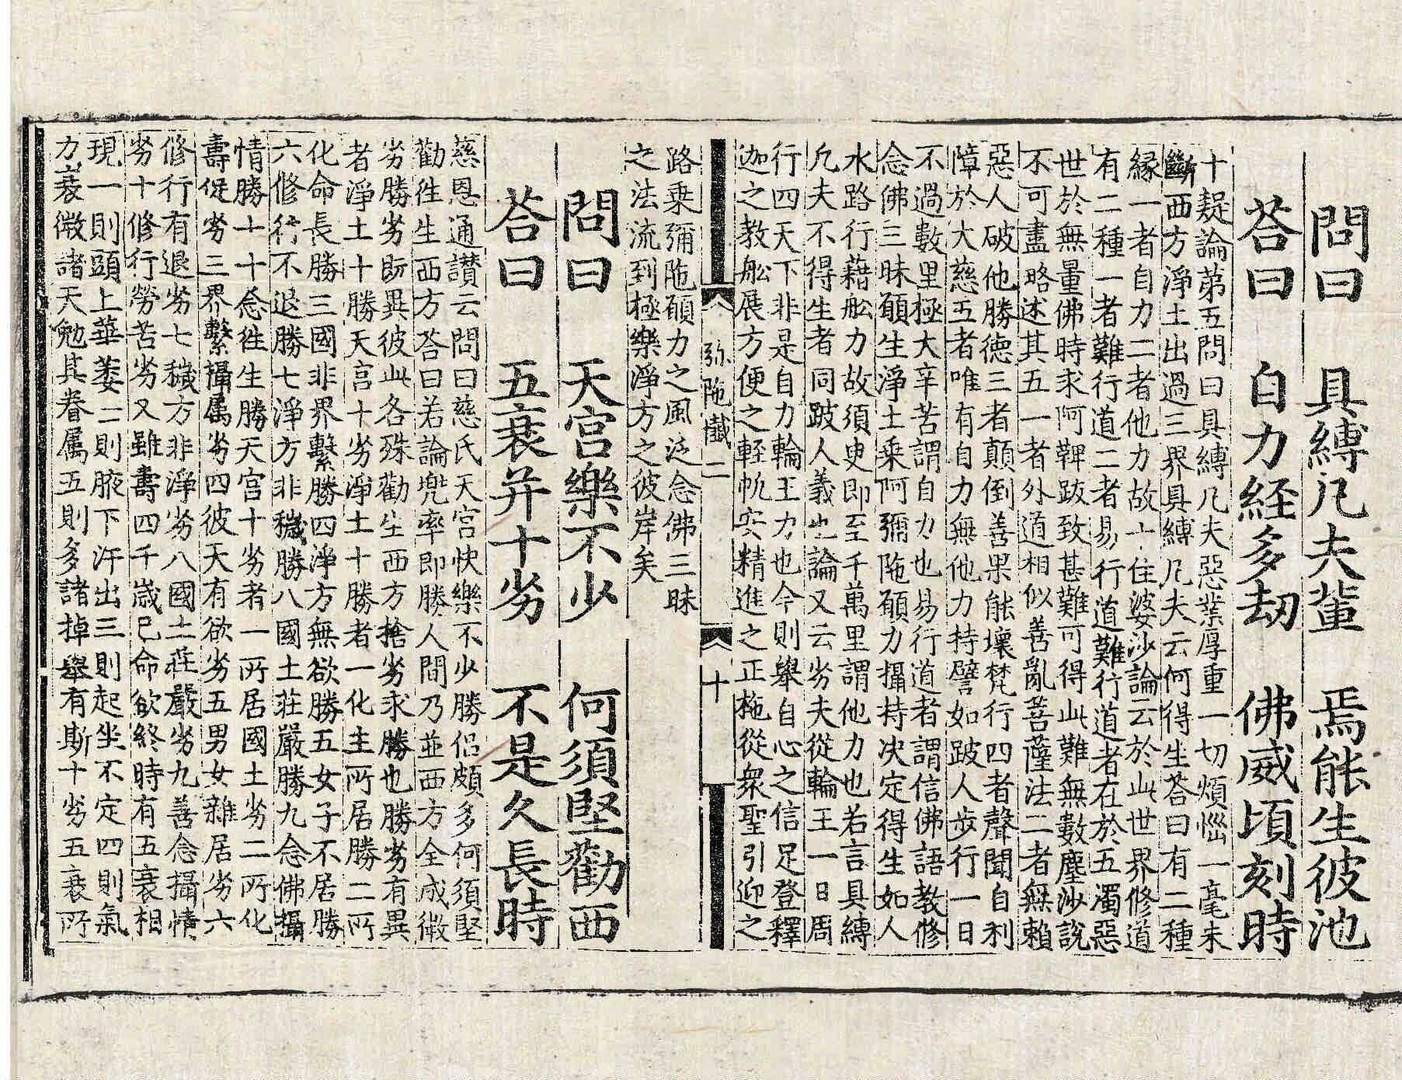 問曰 具縛凡夫輩 焉能生彼池
荅曰 自力経多劫 佛威頃刻時
十疑論第五問曰具縛凡夫惡業厚重一切煩惱一毫未
斷西方淨土出過三界具縛凡夫云何得生荅曰有二種
縁一者自力二者他力故十住婆沙論云於此世界修道
有二種一者難行道二者易行道難行道者在於五濁惡
世於無量佛時求阿鞞跋致甚難可得此難無數塵沙說
不可盡略述其五一者外道相似善亂菩薩法二者無賴
惡人破他勝德三者顛倒善果能壞梵行四者聲聞自利
障於大慈五者唯有自力無他力持譬如跛人步行一日
不過數里極大辛苦謂自力也易行道者謂信佛語教修
念佛三昧願生淨土乘阿彌陁願力攝持決定得生如人
水路行藉舩力故須臾即至千萬里謂他力也若言具縛
凡夫不得生者同跛人義也論又云劣夫從輪王一日周
行四天下非是自力輪王力也今則舉自心之信足登釋
迦之教舩展方便之軽帆安精進之正柂從衆聖引迎之
弥陁懺二 十
路乗彌陁願力之風泛念佛三昧
之法流到極樂淨方之彼岸矣
問曰 天宮樂不少 何須堅勸西
荅曰 五衰并十劣 不是久長時
慈恩通讃云問曰慈氏天宮快樂不少勝侣頗多何須堅
勸徃生西方荅曰若論兠率即勝人間乃並西方全成微
劣勝劣旣異彼此各殊勸生西方捨劣求勝也勝劣有異
者淨土十勝天宮十劣淨土十勝者一化生所居勝二所
化命長勝三國非界繫勝四淨方無欲勝五女子不居勝
六修行不退勝七淨方非穢勝八國土荘嚴勝九念佛攝
情勝十十念徃生勝天宮十劣者一所居國土劣二所化
壽促劣三界繫攝属劣四彼天有欲劣五男女雜居劣六
修行有退劣七穢方非淨劣八國土荘嚴劣九善念攝情
劣十修行勞苦劣又雖壽四千嵗已命欲終時有五衰相
現一則頭上華萎二則腋下汗出三則起坐不定四則氣
力衰微諸天勉其眷属五則多諸掉舉有斯十劣五衰所